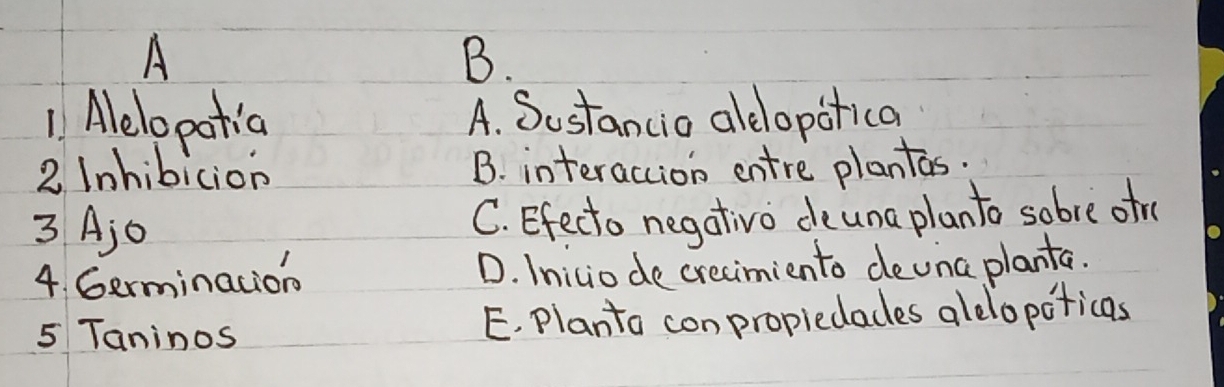 A B.
1. Alelopatía A. Sustancia alelopática
2 Inhibición B. interacción entre plantas.
3 Ajo C. Efecto negativo de una planta sobre otra
4. Germinación D. Inicio de crecimiento de una planta.
5 Taninos E. Planta con propiedades alelopáticas